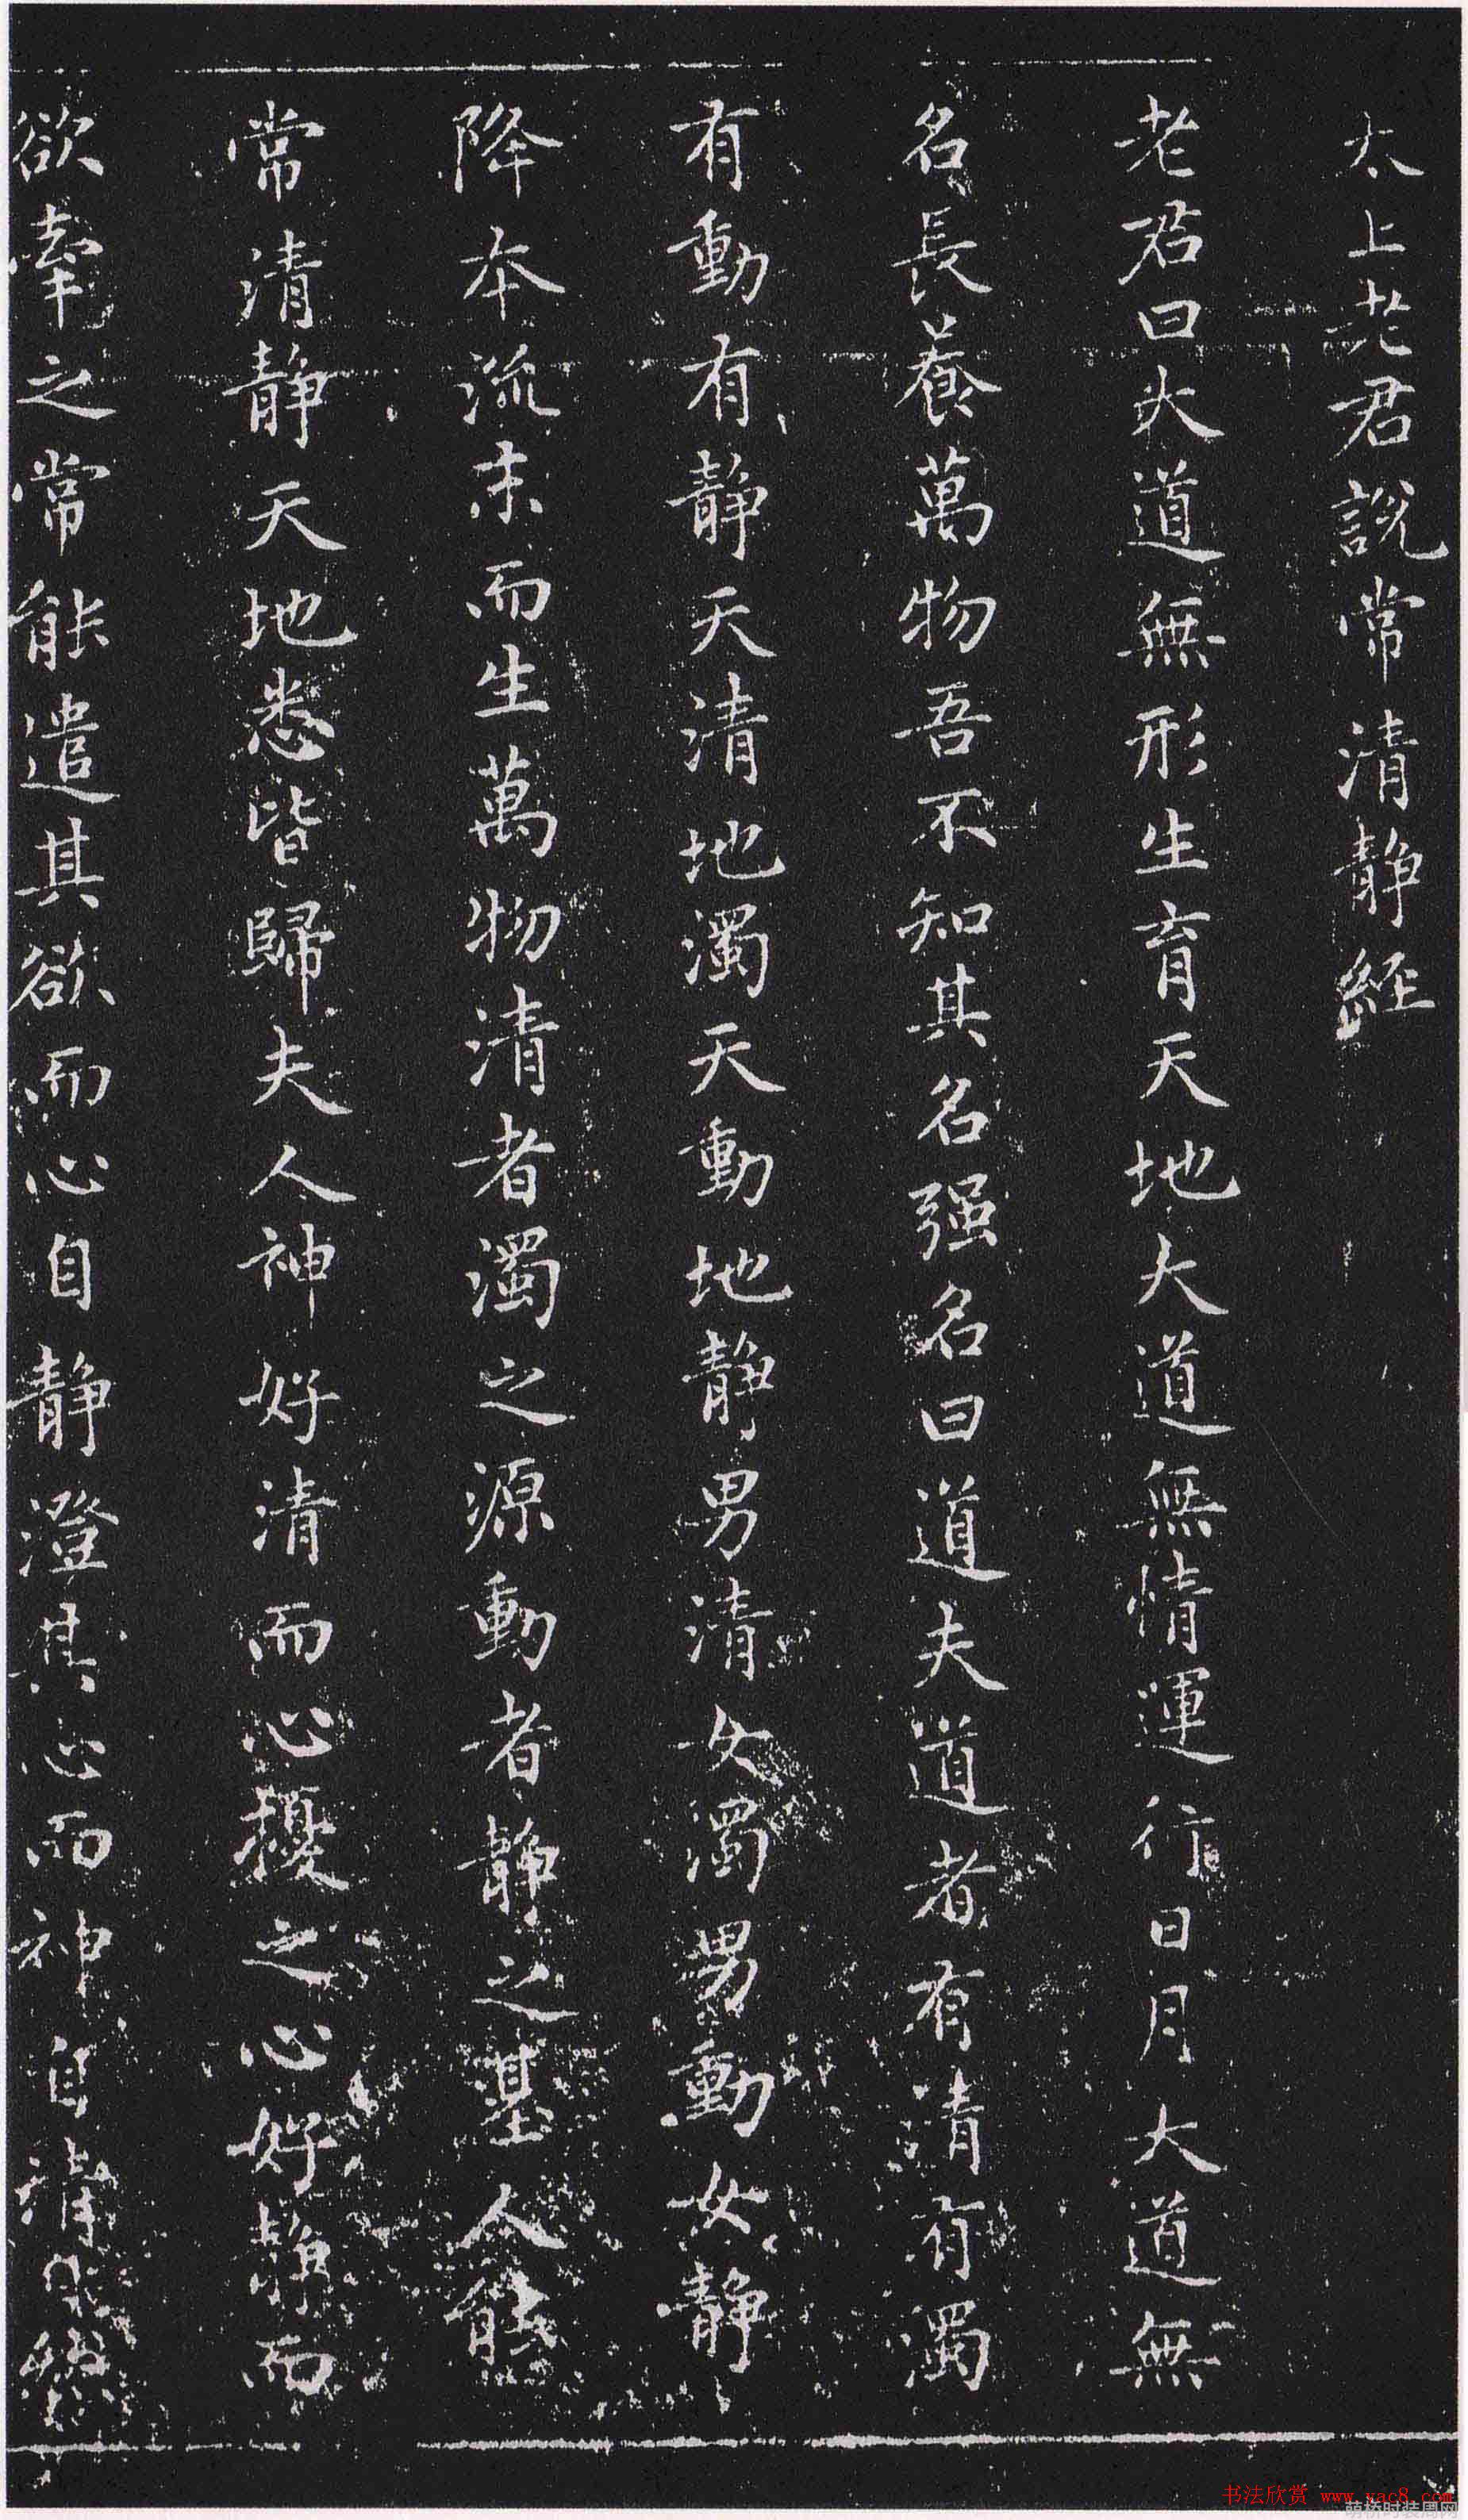 太上老君說常清静經
老君曰大道無形生育天地大道無情運行日月大道無
名長養萬物吾不知其名强名曰道夫道者有清有濁
有動有静天清地濁天動地静男清女濁男動女静
降本流末而生萬物清者濁之源動者静之基人能
常清静天地悉皆歸夫人神好清而心擾之心好静而
欲牽之常能遣其欲而心自静澄其心而神自清
书法欣赏 www.yac8.com